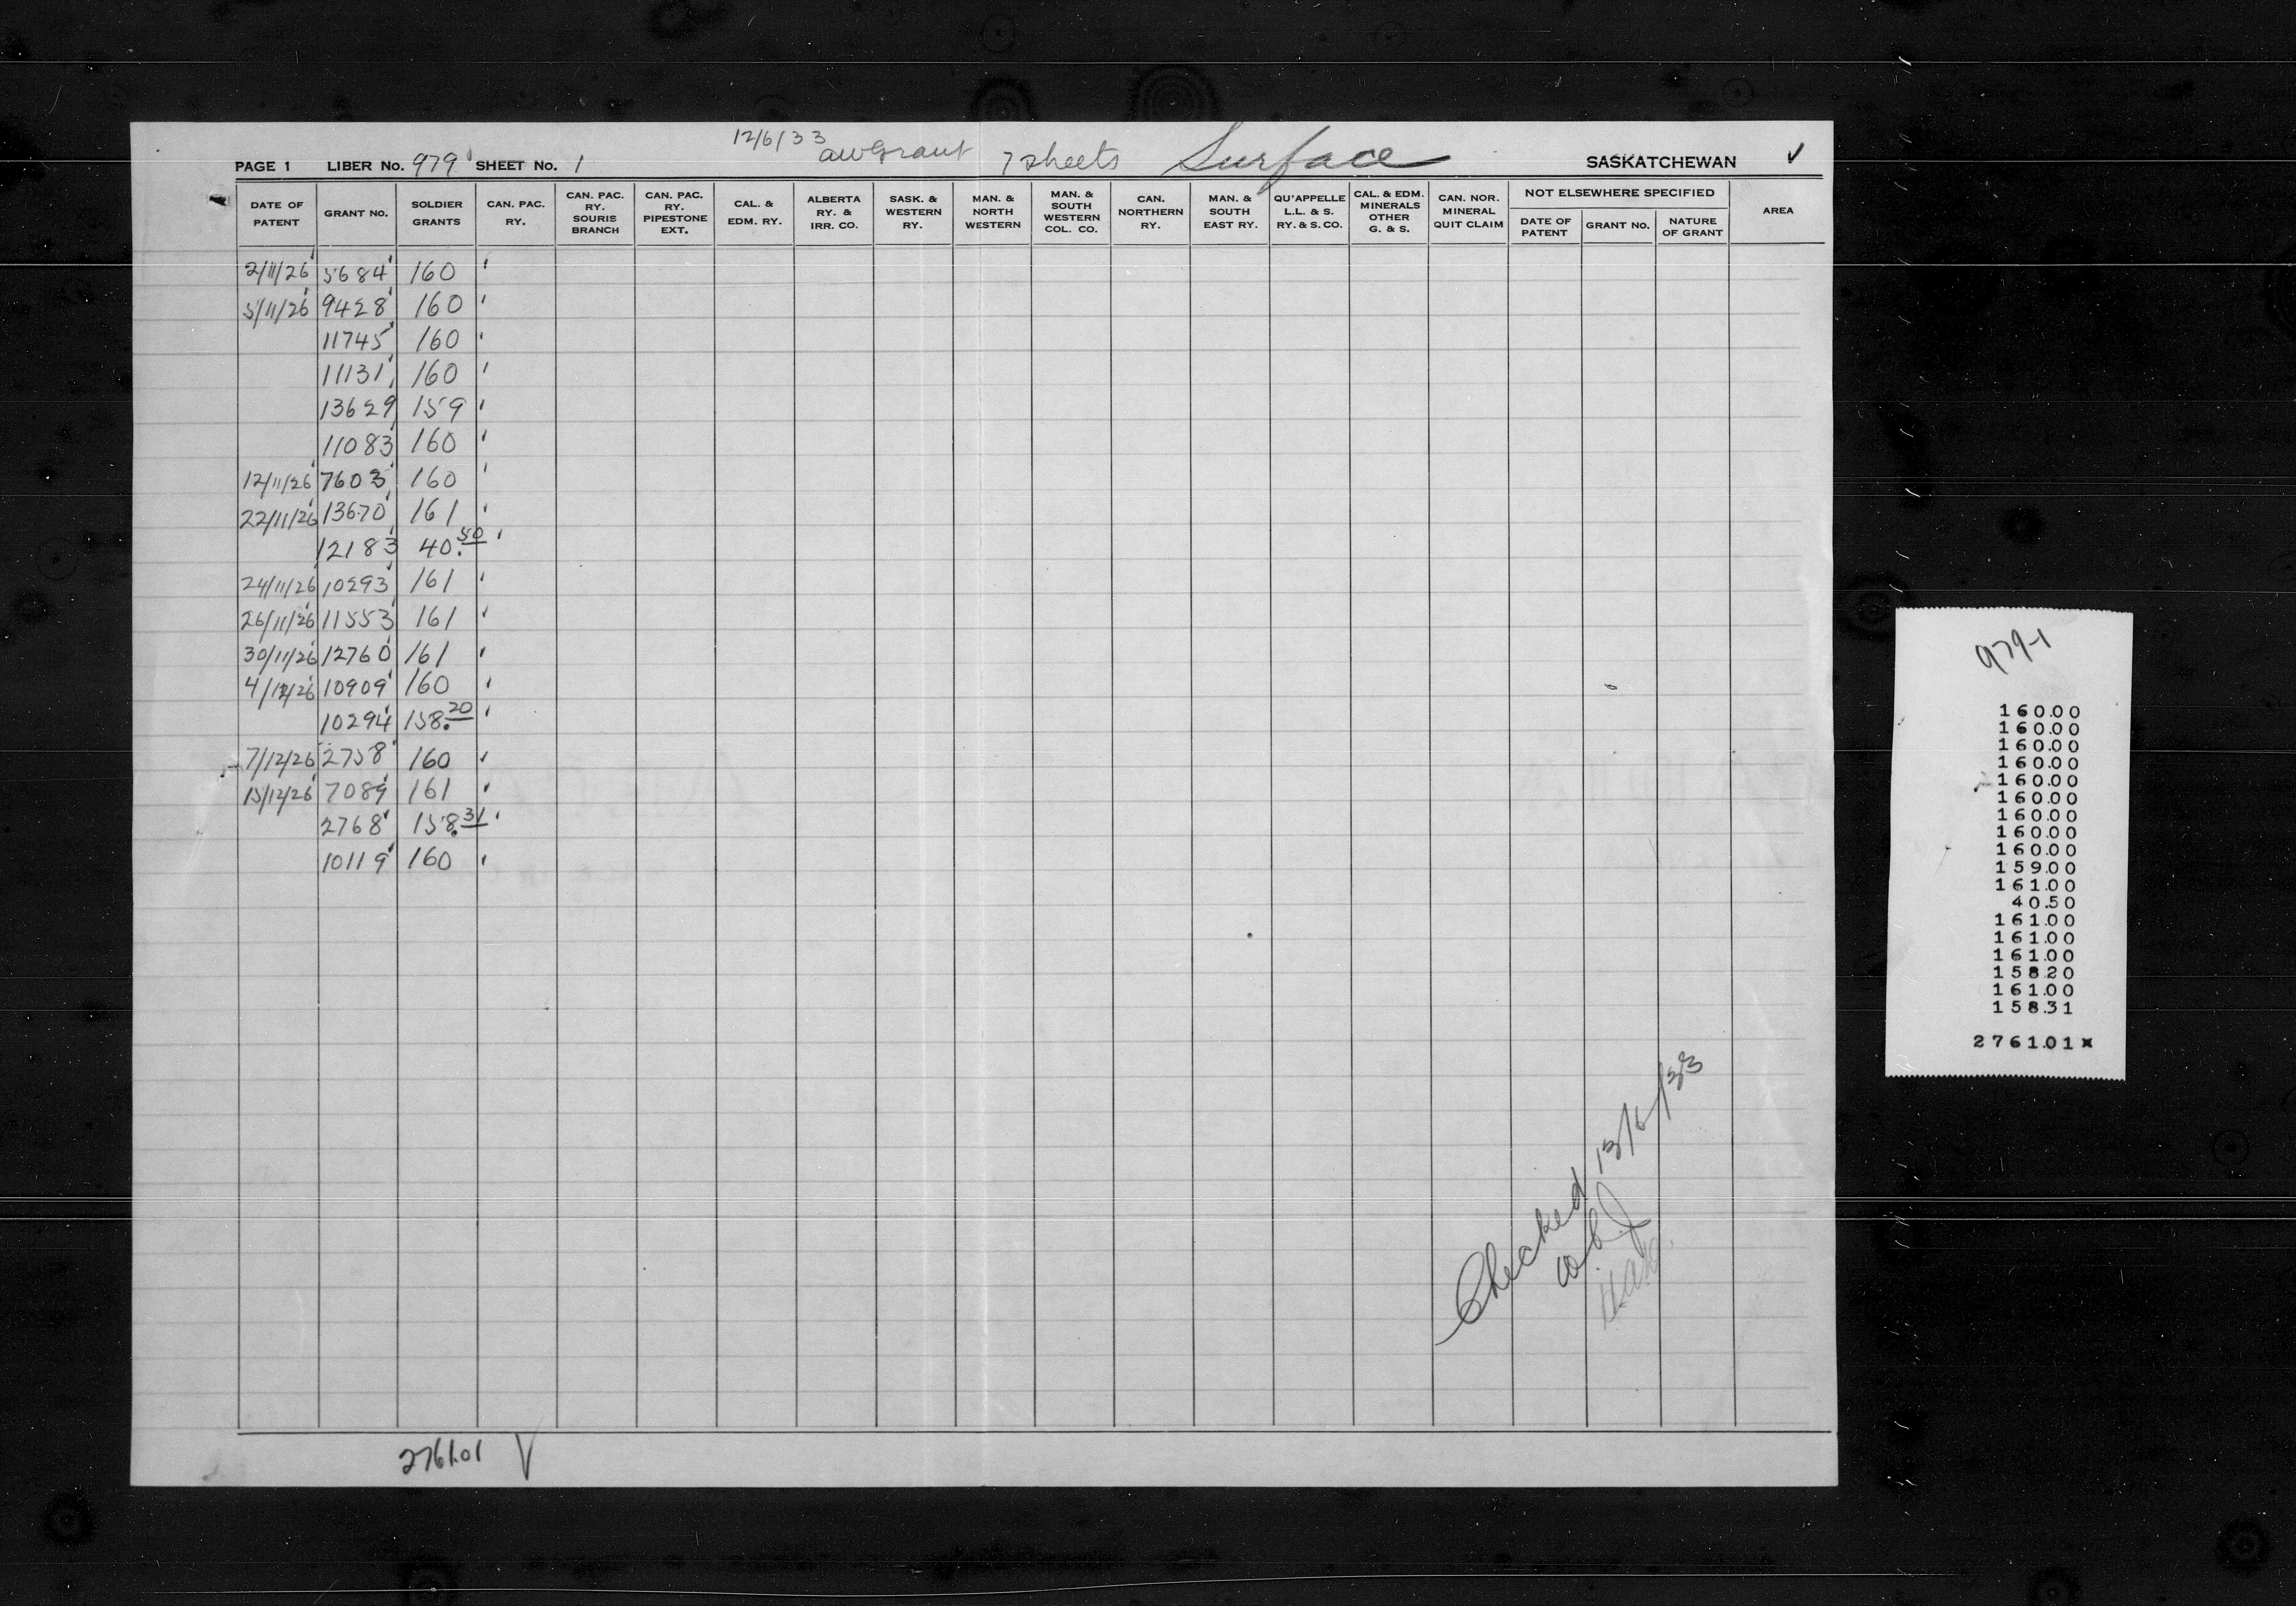 12/6/33 awGrant 7 sheets Surface
PAGE 1 LIBER No. 979 SHEET No. 1 SASKATCHEWAN ✓
DATE OF PATENT GRANT NO. SOLDIER GRANTS CAN. PAC. RY. CAN. PAC. RY. SOURIS BRANCH CAN. PAC. RY. PIPESTONE EXT. CAL. & EDM. RY. ALBERTA RY. & IRR. CO. SASK. & WESTERN RY. MAN. & NORTH WESTERN MAN. & SOUTH WESTERN COL. CO. CAN. NORTHERN RY. MAN. & SOUTH EAST RY. QU'APPELLE L.L. & S. RY. & S. CO. CAL. & EDM. MINERALS OTHER G. & S. CAN. NOR. MINERAL QUIT CLAIM NOT ELSEWHERE SPECIFIED DATE OF PATENT GRANT NO. NATURE OF GRANT AREA
2/11/26 5684 160
5/11/26 9428 160
11745 160
11131 160
13629 159
11083 160
12/11/26 7603 160
22/11/26 13670 161
12183 40.50
24/11/26 10293 161
26/11/26 11553 161
30/11/26 12760 161
4/12/26 10909 160
10294 158.20
7/12/26 2758 160
15/12/26 7089 161
2768 158.31
10119 160
2761.01 ✓
Checked 13/6/33
979-1
160.00
160.00
160.00
160.00
160.00
160.00
160.00
160.00
160.00
159.00
161.00
40.50
161.00
161.00
161.00
158.20
161.00
158.31
2761.01*